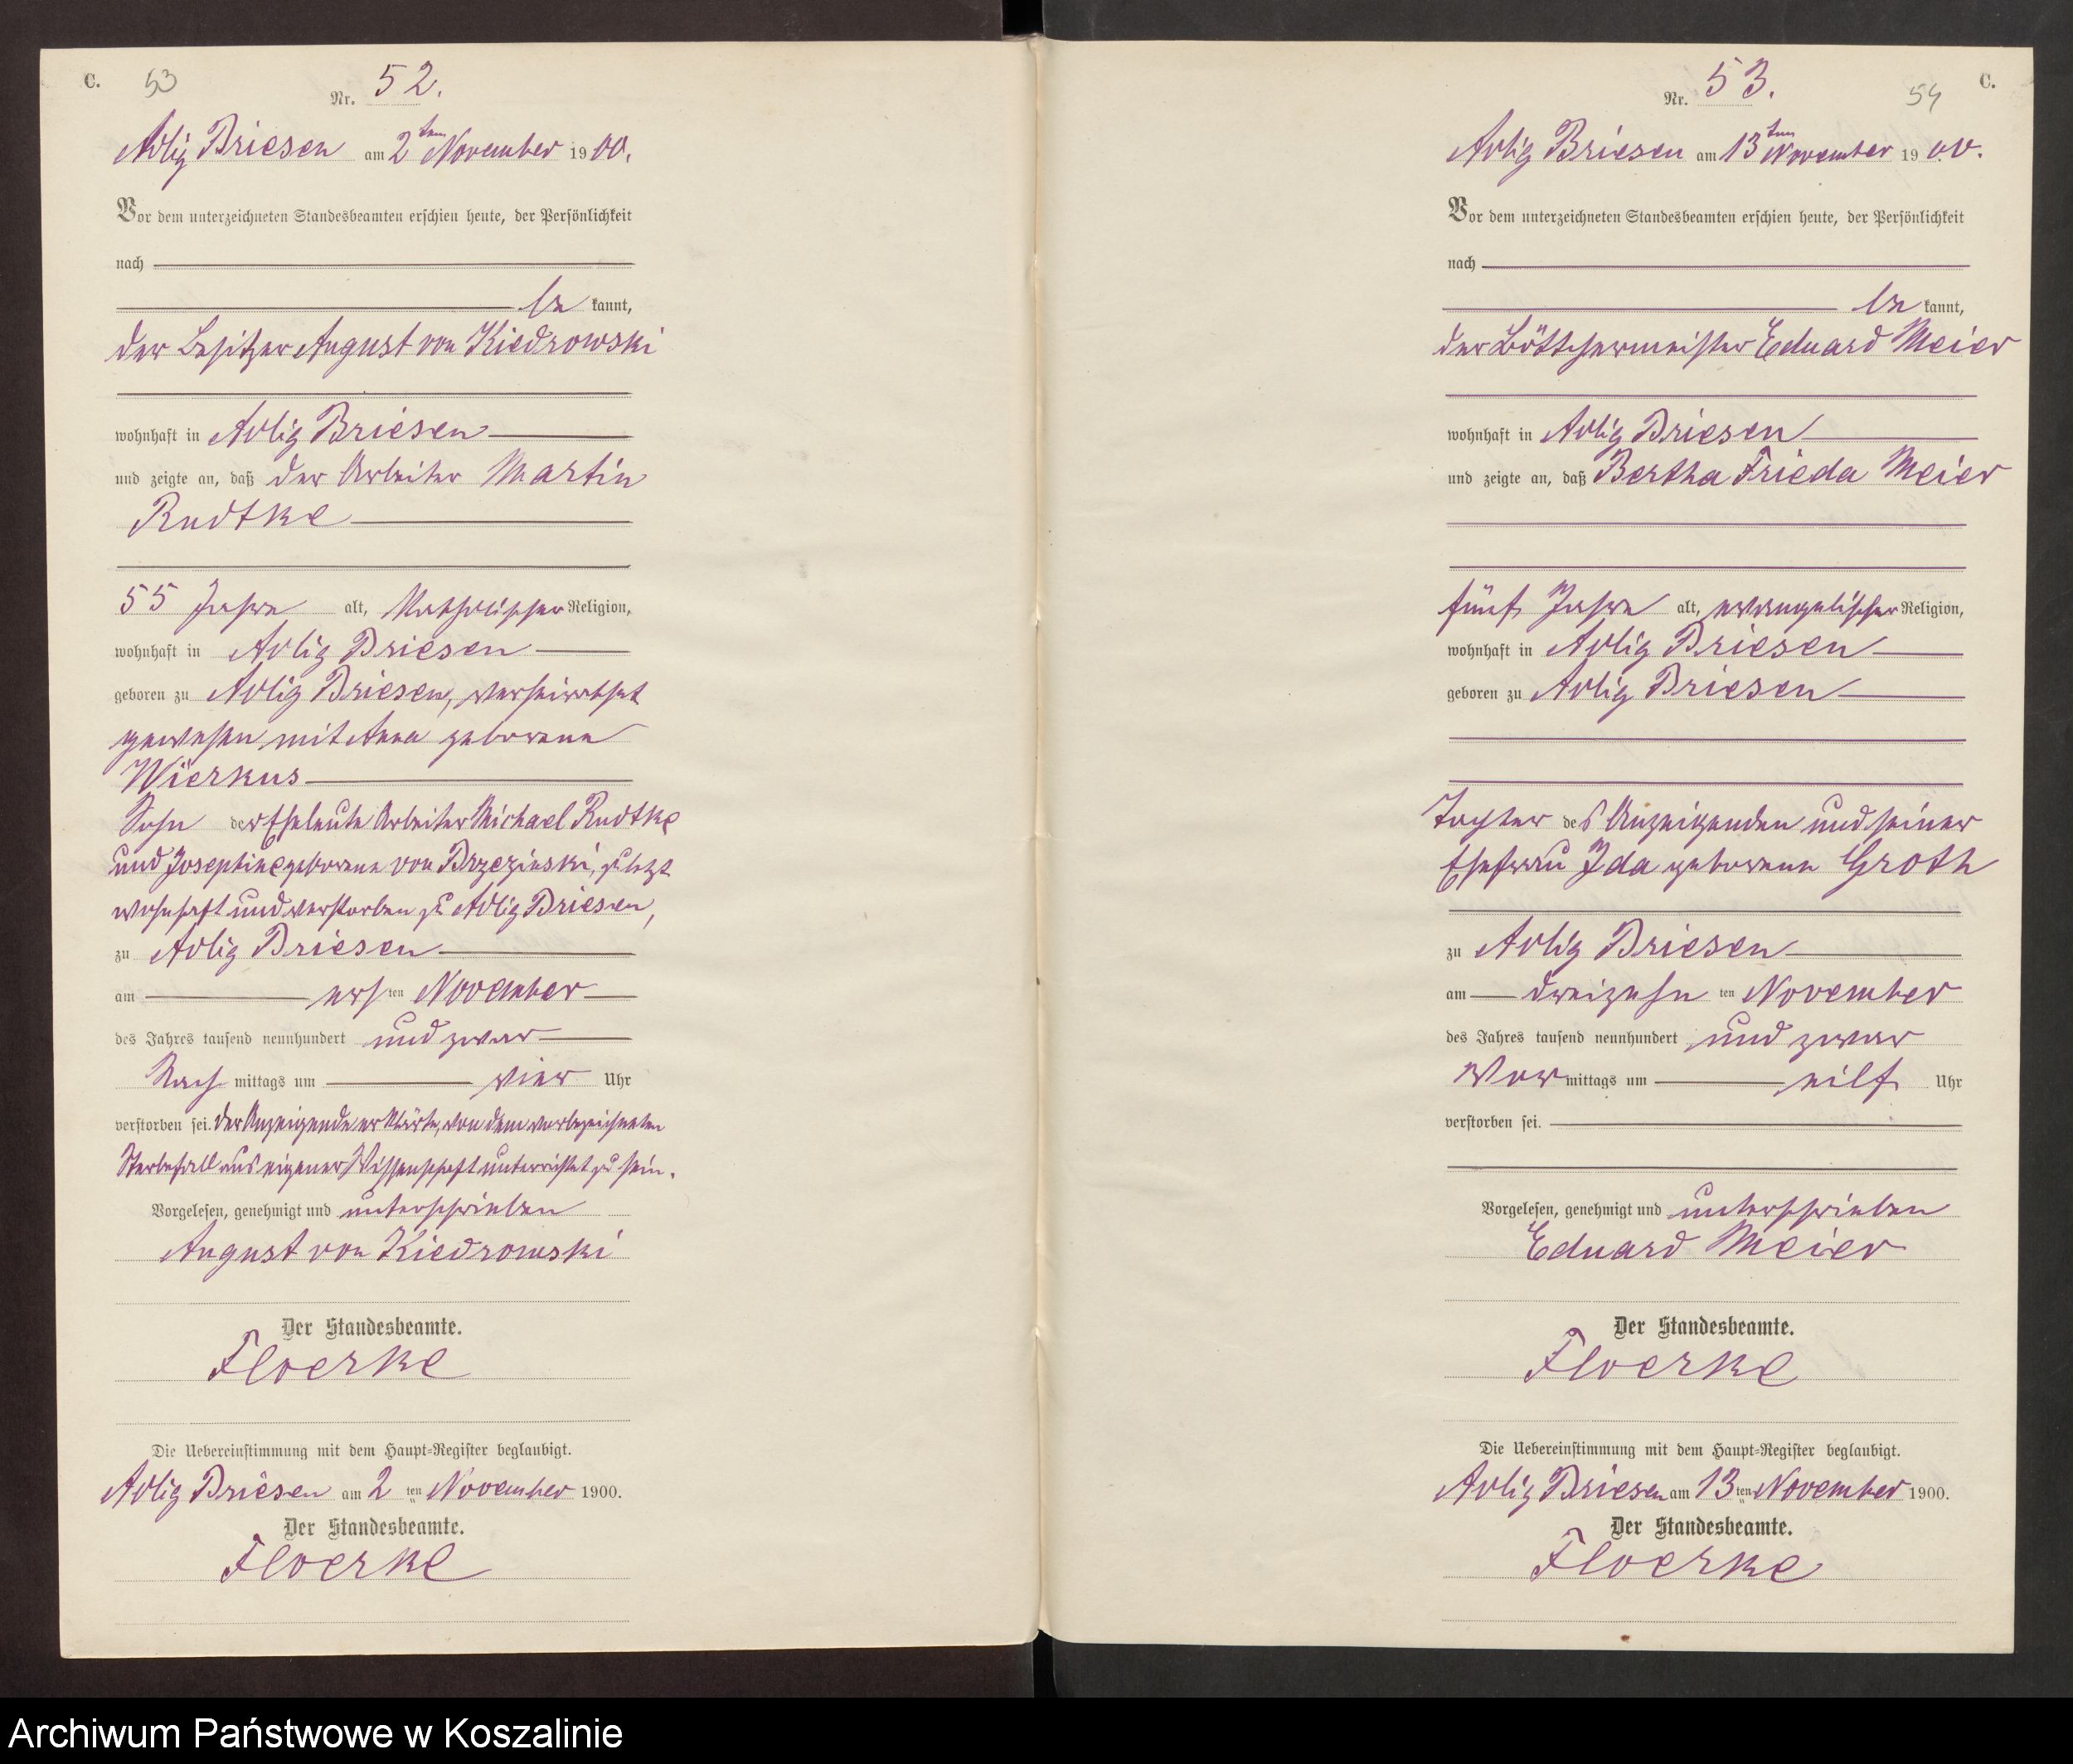 C. 53
Nr. 52.
Adlig Briesen am 2ten November 1900.
Vor dem unterzeichneten Standesbeamten erschien heute, der Persönlichkeit
nach
be kannt,
der Besitzer August von Kiedrowski
wohnhaft in Adlig Briesen
und zeigte an, daß der Arbeiter Martin
Rudtke
55 Jahre alt, katholischer Religion,
wohnhaft in Adlig Briesen
geboren zu Adlig Briesen, verheirathet
gewesen mit Anna geborene
Wierkus
Sohn der Eheleute Arbeiter Michael Rudtke
und Josephine geborene von Brzezinski, zuletzt
wohnhaft und verstorben zu Adlig Briesen,
zu Adlig Briesen
am ersten November
des Jahres tausend neunhundert und zwar
Nachmittags um vier Uhr
verstorben sei. Der Anzeigende erklärte, von dem vorbezeichneten
Sterbefall aus eigener Wissenschaft unterrichtet zu sein.
Vorgelesen, genehmigt und unterschrieben
August von Kiedrowski
Der Standesbeamte.
Floerke
Die Uebereinstimmung mit dem Haupt-Register beglaubigt.
Adlig Briesen am 2ten November 1900.
Der Standesbeamte.
Floerke
C. 54
Nr. 53.
Adlig Briesen am 13ten November 1900.
Vor dem unterzeichneten Standesbeamten erschien heute, der Persönlichkeit
nach
be kannt,
der Böttchermeister Eduard Meier
wohnhaft in Adlig Briesen
und zeigte an, daß Bertha Frieda Meier
fünf Jahre alt, evangelischer Religion,
wohnhaft in Adlig Briesen
geboren zu Adlig Briesen
Tochter des Anzeigenden und seiner
Ehefrau Ida geborene Groth
zu Adlig Briesen
am dreizehn ten November
des Jahres tausend neunhundert und zwar
Vormittags um eilf Uhr
verstorben sei.
Vorgelesen, genehmigt und unterschrieben
Eduard Meier
Der Standesbeamte.
Floerke
Die Uebereinstimmung mit dem Haupt-Register beglaubigt.
Adlig Briesen am 13ten November 1900.
Der Standesbeamte.
Floerke
Archiwum Państwowe w Koszalinie